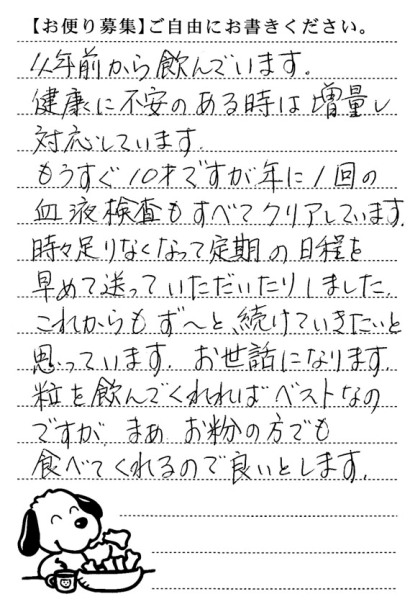 【お便り募集】ご自由にお書きください。
4年前から飲んでいます。
健康に不安のある時は増量し
対応しています。
もうすぐ10才ですが年に1回の
血液検査もすべてクリアしています。
時々足りなくなって定期の日程を
早めて送っていただいたりしました。
これからもず〜と、続けていきたいと
思っています。お世話になります。
粒を飲んでくれればベストなの
ですが、まあお粉の方でも
食べてくれるので良いとします。